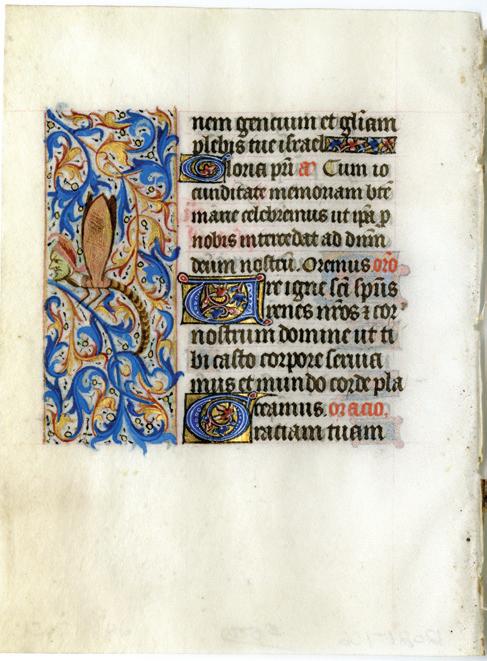 nem gencium et gl̄iam
plebis tue israel
Gloria pr̄i a᷒ Cum io
cunditate memoriam bt̄e
marie celebremus ut ip̄a p
nobis intercedat ad dn̄m
deum nostrū. Oremus. or̄o
Ure igne sc̄i spūs
renes nr̄os ⁊ cor
nostrum domine ut ti
bi casto corpore seruia
mus et mundo corde pla
ceamus. oracio.
Graciam tuam